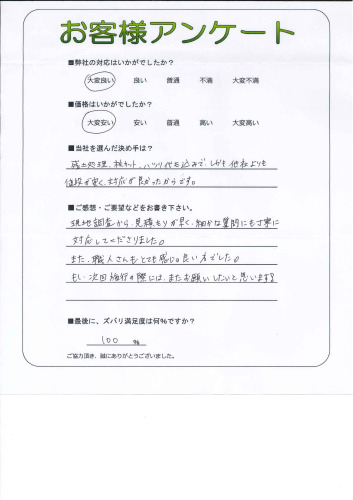 お客様アンケート
■弊社の対応はいかがでしたか?
大変良い 良い 普通 不満 大変不満
■価格はいかがでしたか?
大変安い 安い 普通 高い 大変高い
■当社を選んだ決め手は?
残土処理、根カット、ハツリ代も込みで、しかも他社よりも
値段が安く、対応が良かったからです。
■ご感想・ご要望などをお書き下さい。
現地調査から見積もりが早く、細かな質問にも丁寧に
対応してくださりました。
また、職人さんもとても感じの良い方でした。
もし、次回施行の際には、またお願いしたいと思います。
■最後に、ズバリ満足度は何%ですか?
100 %
ご協力頂き、誠にありがとうございました。